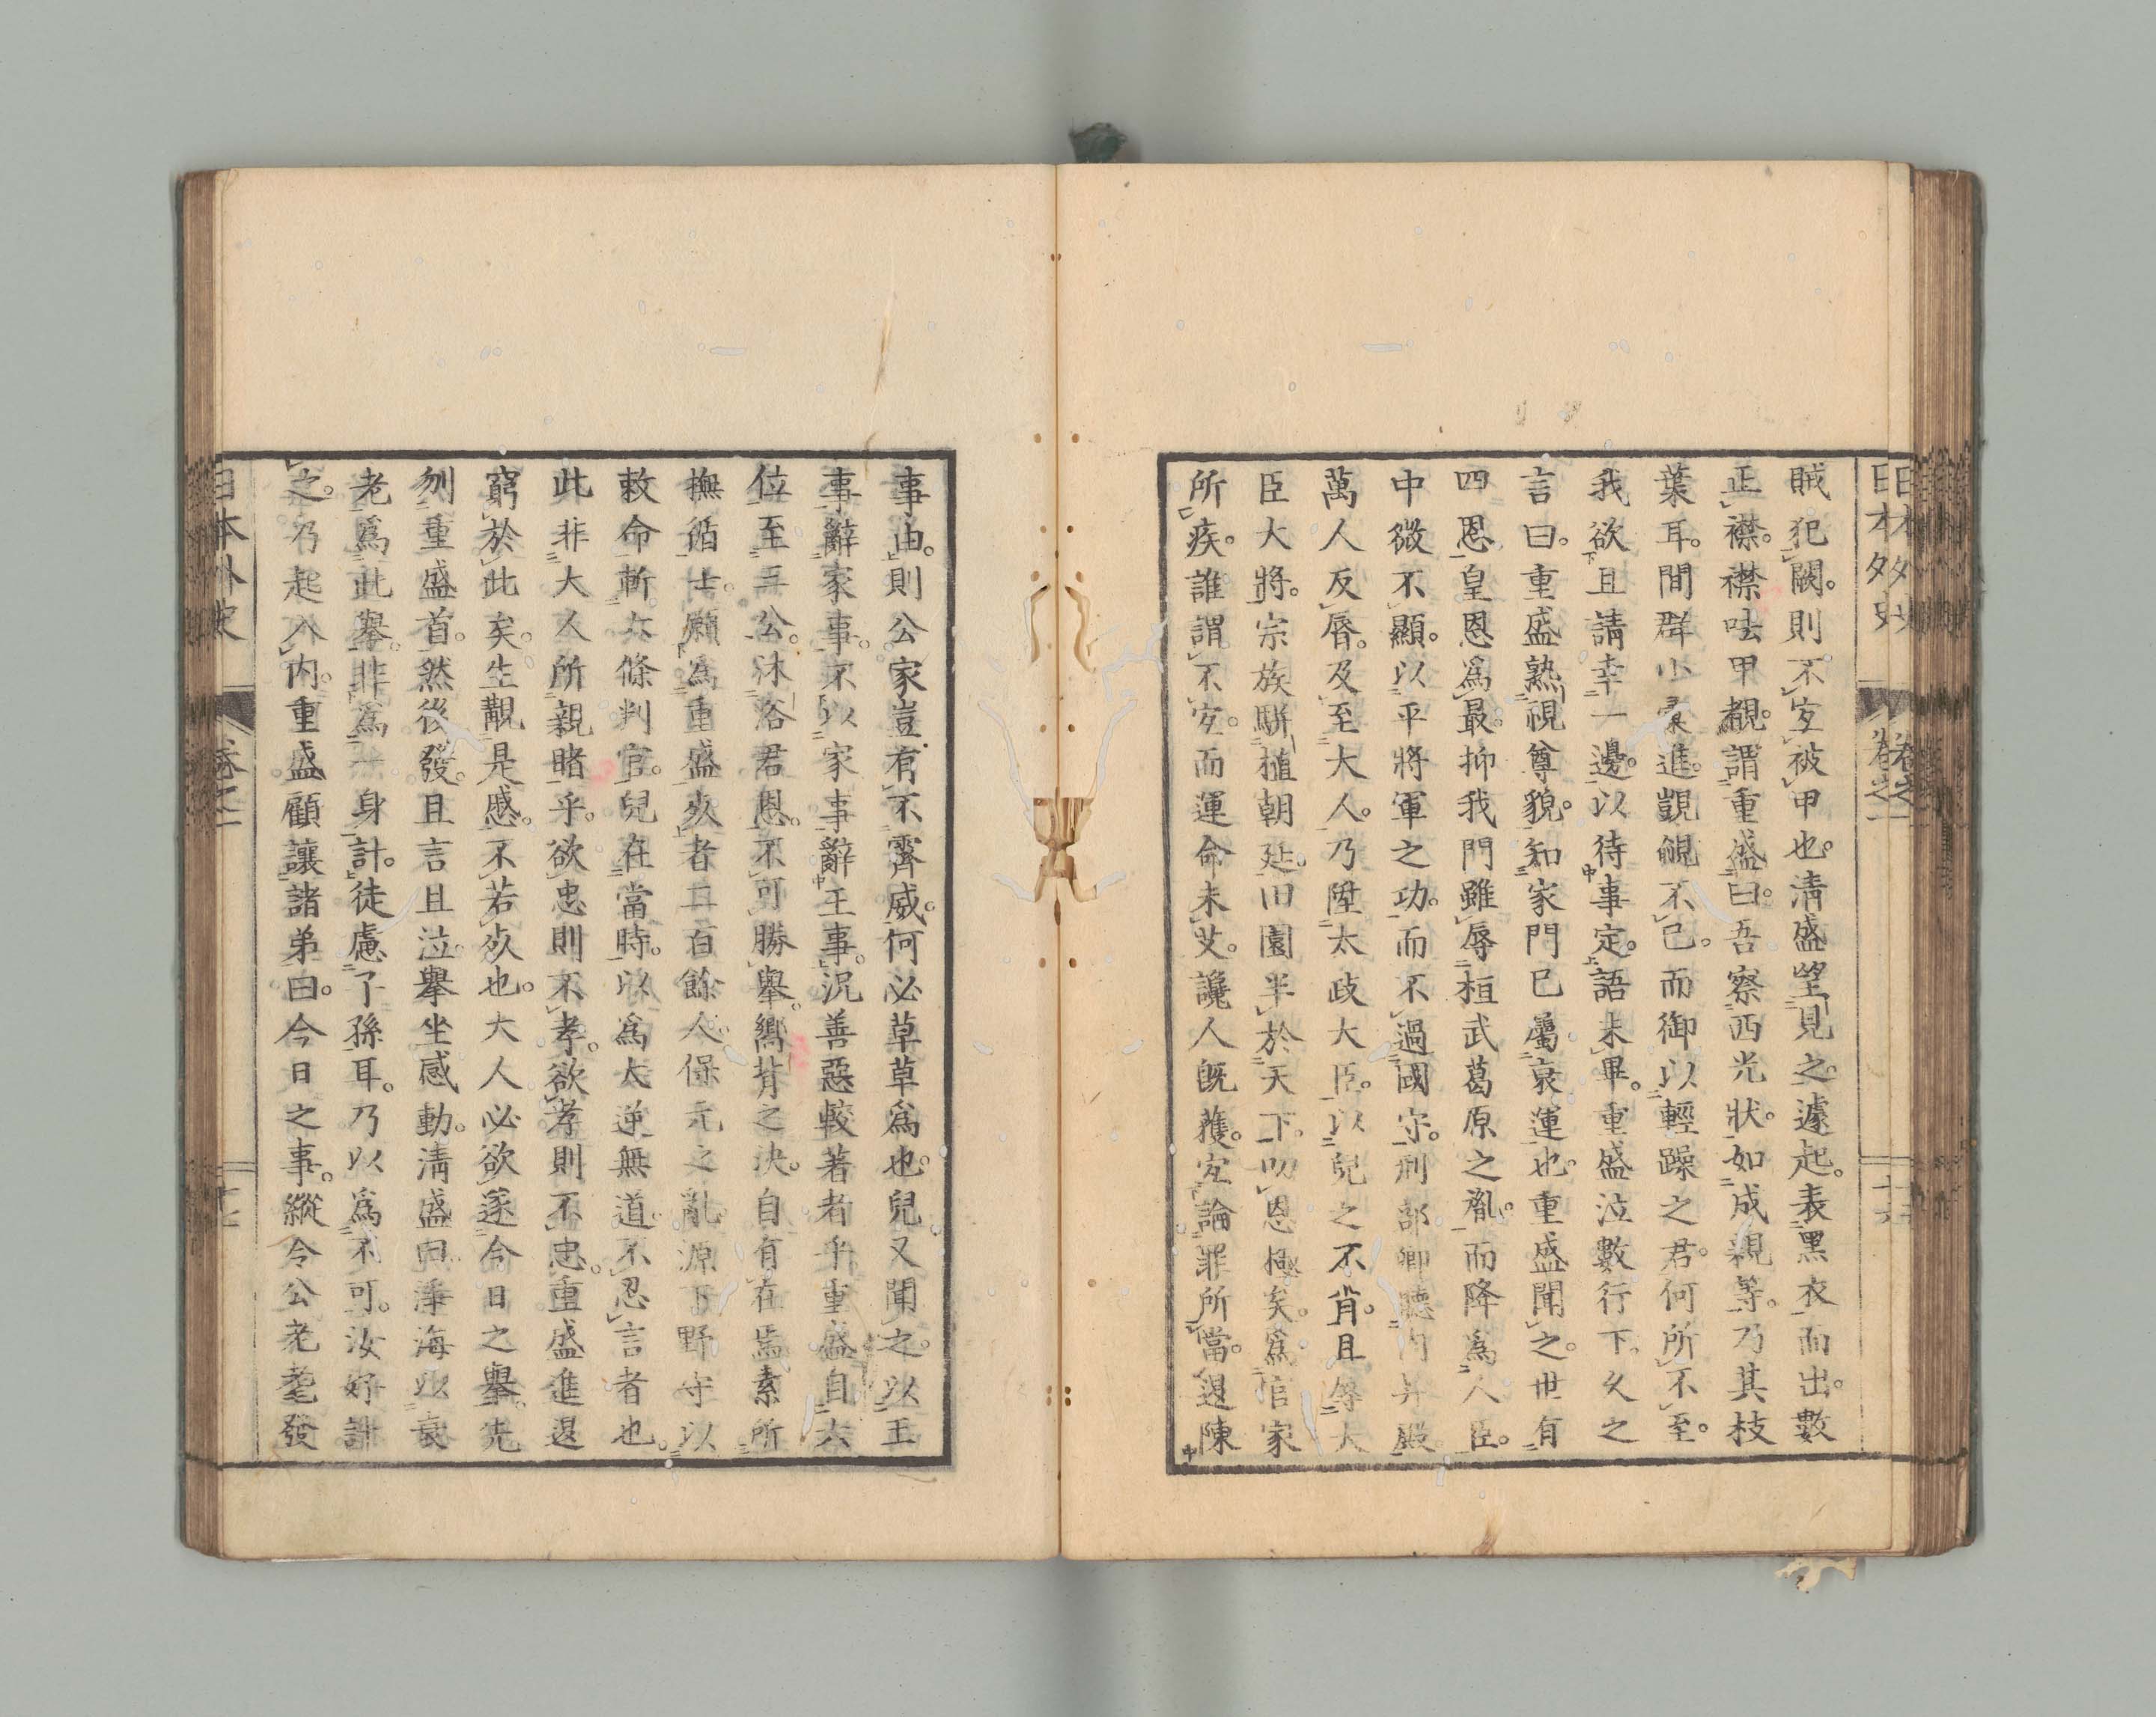 日本外史 卷之一 十六
賊犯闕。則不宜被甲也。淸盛望見之。遽起。表黑衣而出。數
正襟。襟呿甲覩。謂重盛曰。吾察西光狀。如成親等。乃其枝
葉耳。間群小彙進。覬覦不已。而御以輕躁之君。何所不至。
我欲且請幸一邊。以待事定。語未畢。重盛泣數行下。久之
言曰。重盛熟視尊貌。知家門已屬衰運也。重盛聞之。世有
四恩。皇恩爲最。抑我門雖辱桓武葛原之胤。而降爲人臣。
中微不顯。以平將軍之功。而不過國守。刑部卿聽內昇殿。
萬人反唇。及至大人。乃陞太政大臣。以兒之不肖。且
臣大將。宗族駢植朝廷。田園半於天下。叨恩極矣。爲官家
所疾。誰謂不宜。而運命未艾。讒人旣獲。宜論罪所當。退陳
事由。則公家豈有不霽威。何必草草爲也。兒又聞之。以王
事辭家事。不以家事辭王事。況善惡較著者乎。重盛自六
位至三公。沐浴君恩。不可勝擧。嚮背之決。自有在焉。素所
撫循士。願爲重盛死者二百餘人。保元之亂。源下野守以
敕命斬六條判官。兒在當時。以爲大逆無道。不忍言者也。
此非大人所親睹乎。欲忠則不孝。欲孝則不忠。重盛進退
窮於此矣。生覯是慼。不若死也。大人必欲遂今日之擧。先
刎重盛首。然後發。且言且泣。擧坐感動。淸盛曰。淨海以衰
老爲此擧。非爲身計。徒慮子孫耳。乃以爲不可。汝好計
之。乃起入內。重盛顧讓諸弟曰。今日之事。縱令公老耄發
日本外史 卷之一 十七